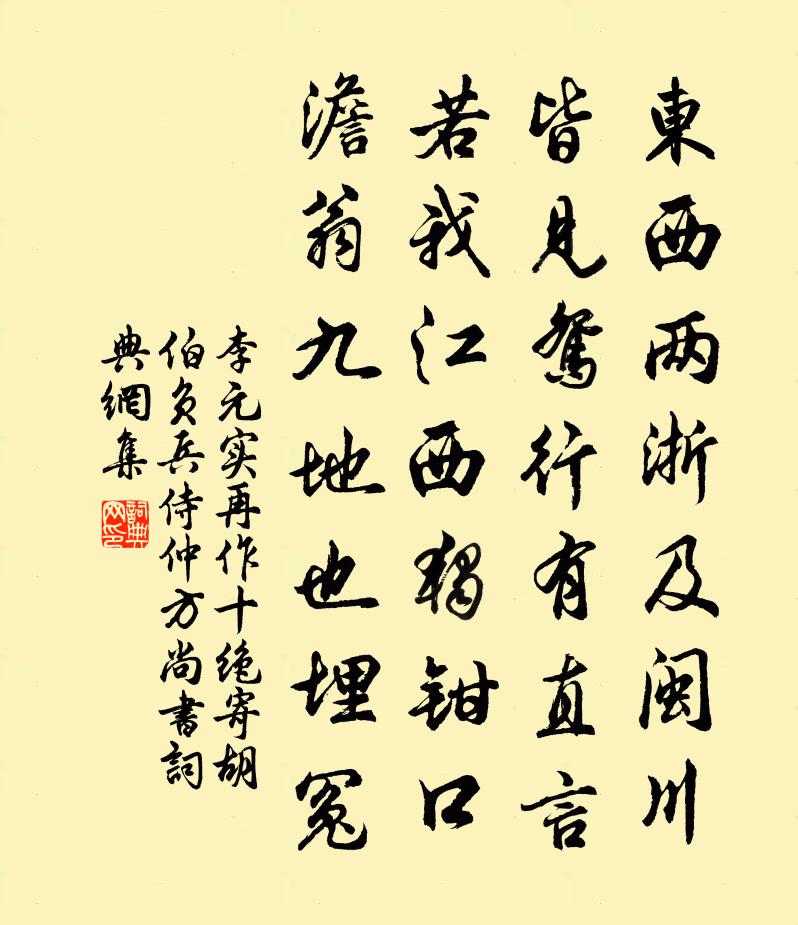 東西两浙及闽川
皆見鴛行有直言
若我江西独钳口
澹翁九地也埋冤
李元实再作十绝寄胡
伯负兵侍仲方尚書詞
典網集
詞典
网印